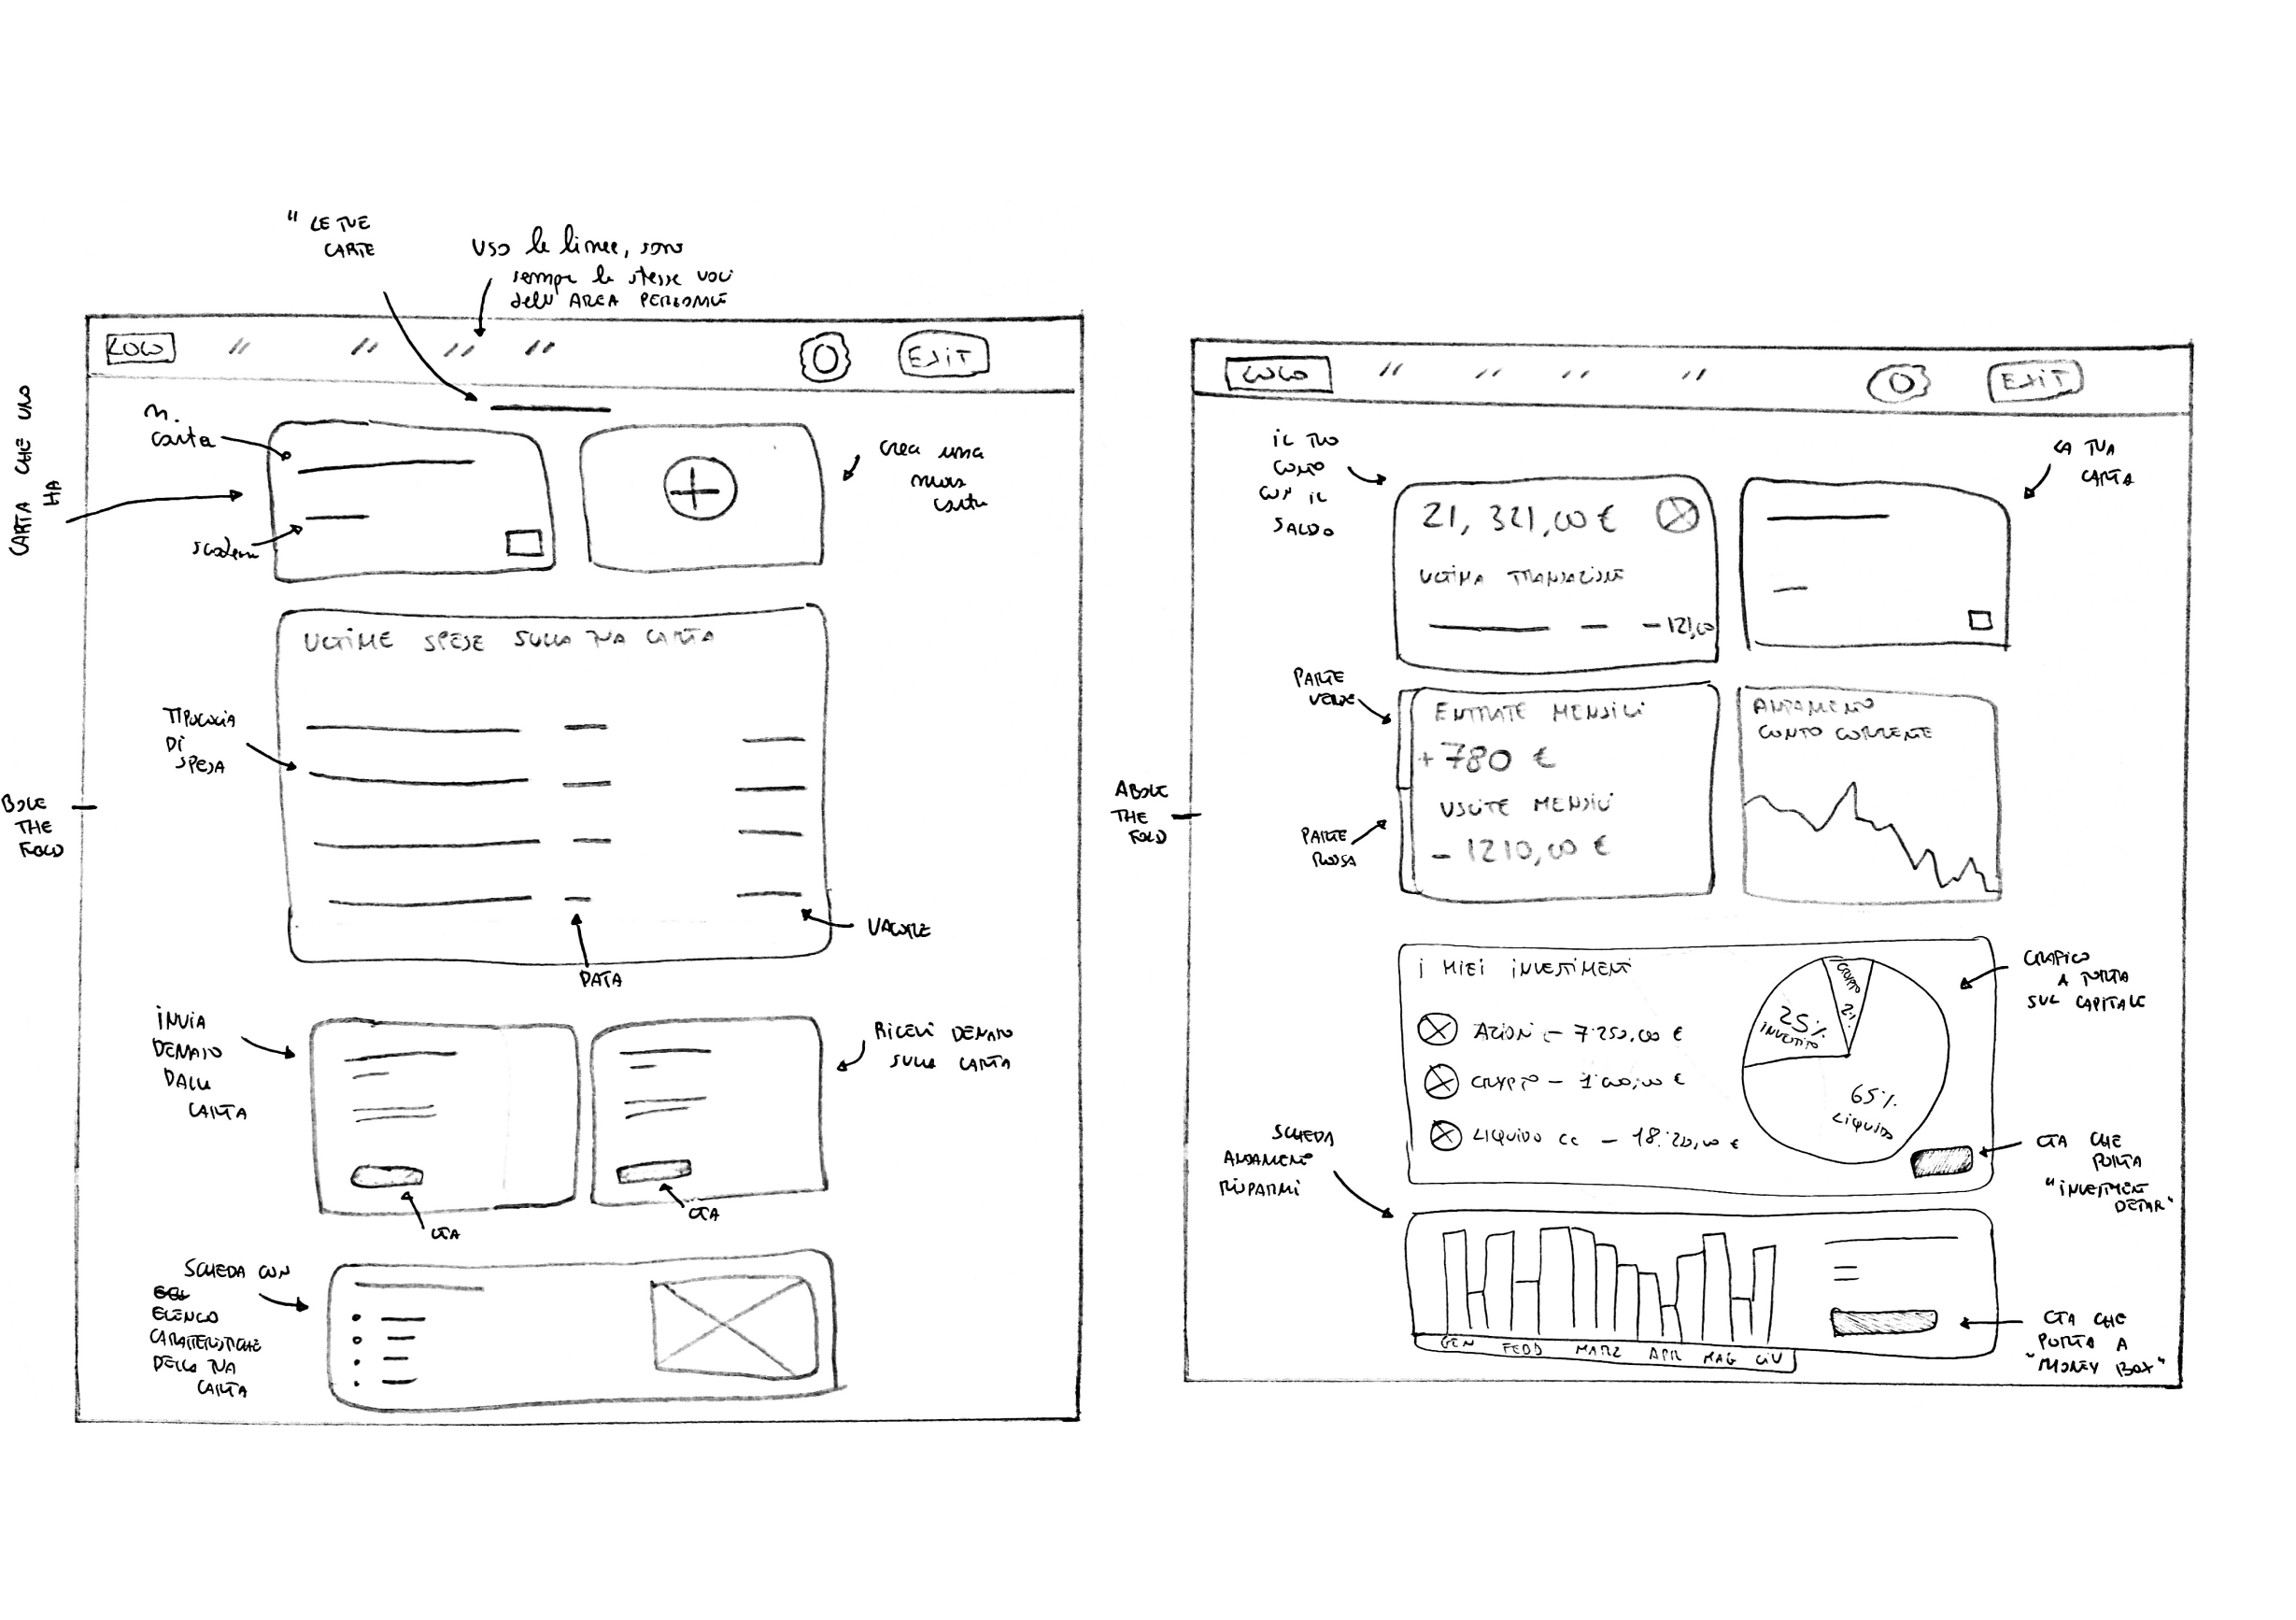 " LE TUE
CARTE
USO le linee, sono
sempre le stesse voci
dell'AREA PERSONALE
LOGO
// // // //
EXIT
CARTA CHE UNO
HA
n.
carta
scadenza
crea una
nuova
carta
ULTIME SPESE SULLA TUA CARTA
TIPOLOGIA
DI
SPESA
BOVE
THE
FOLD
VALORE
DATA
INVIA
DENARO
DALLA
CARTA
RICEVI DENARO
SULLA CARTA
CTA
CTA
SCHEDA CON
ELENCO
CARATTERISTICHE
DELLA TUA
CARTA
LOGO
// // // //
EXIT
IL TUO
CONTO
CON IL
SALDO
LA TUA
CARTA
21, 321,00 €
ULTIMA TRANSAZIONE
-121,00
PARTE
VERDE
ENTRATE MENSILI
+ 780 €
USCITE MENSILI
- 1210,00 €
PARTE
ROSSA
ANDAMENTO
CONTO CORRENTE
ABOVE
THE
FOLD
I MIEI INVESTIMENTI
AZIONI - 7.250,00 €
CRYPTO - 1.000,00 €
LIQUIDO CC -
25%
INVESTITO
CRYPTO
65%
LIQUIDO
GRAFICO
A TORTA
SUL CAPITALE
CTA CHE
PORTA
"INVESTMENT
SCHEDA
ANDAMENTO
RISPARMI
GEN FEBB MARZ APR MAG GIU
CTA CHE
PORTA A
"MONEY BOX"